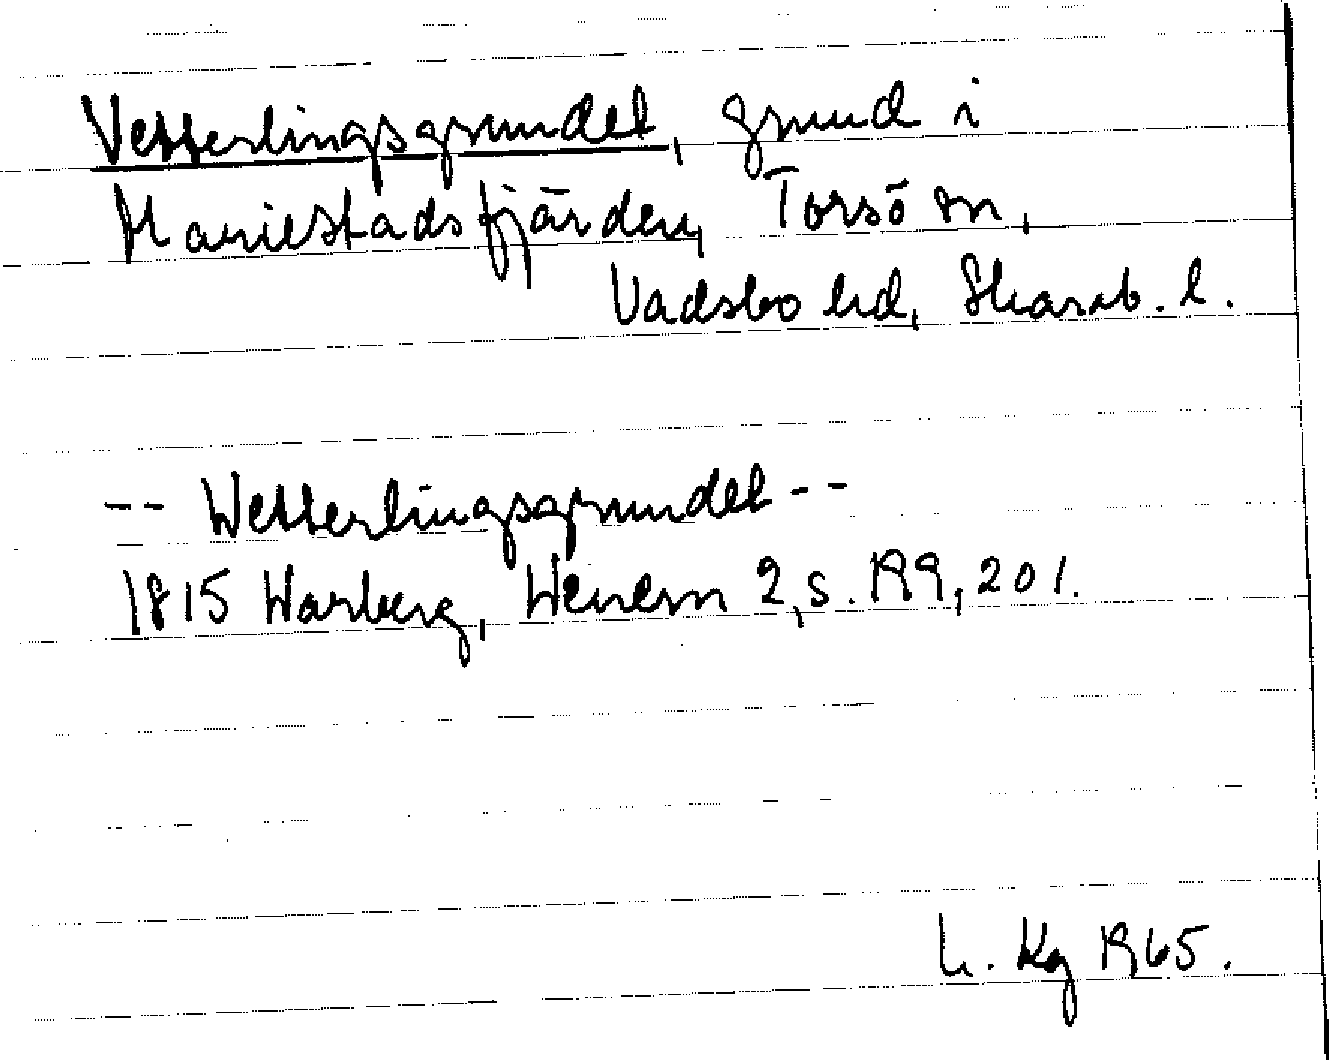 Vetterlingsgrundet, grund i
Mariestadsfjärden, Torsö sn,
Vadsbo hd, Skarab. l.
-- Wetterlingsgrundet --
1815 Warberg, Wenern 2, s. 199, 201.
L. Kg 1965.